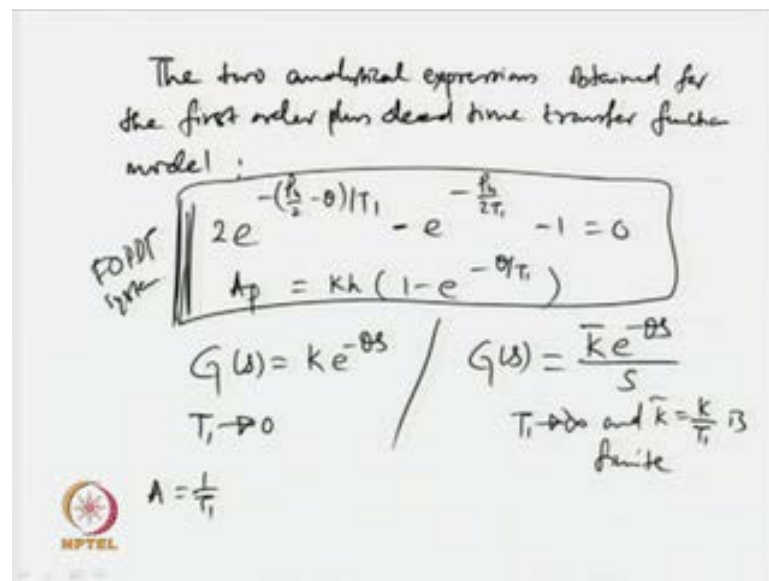 The two analytical expressions obtained for
the first order plus dead time transfer function
model :
2e^{-(Pu/2 - θ)/T₁} - e^{-Pu/2T₁} - 1 = 0
FOPDT system
Ap = Kh (1 - e^{-θ/T₁})
G(s) = Ke^{-θs} / G(s) = K̄e^{-θs}/s
T₁→0
T₁→∞ and K̄ = K/T₁ is
finite
A = 1/T₁
NPTEL